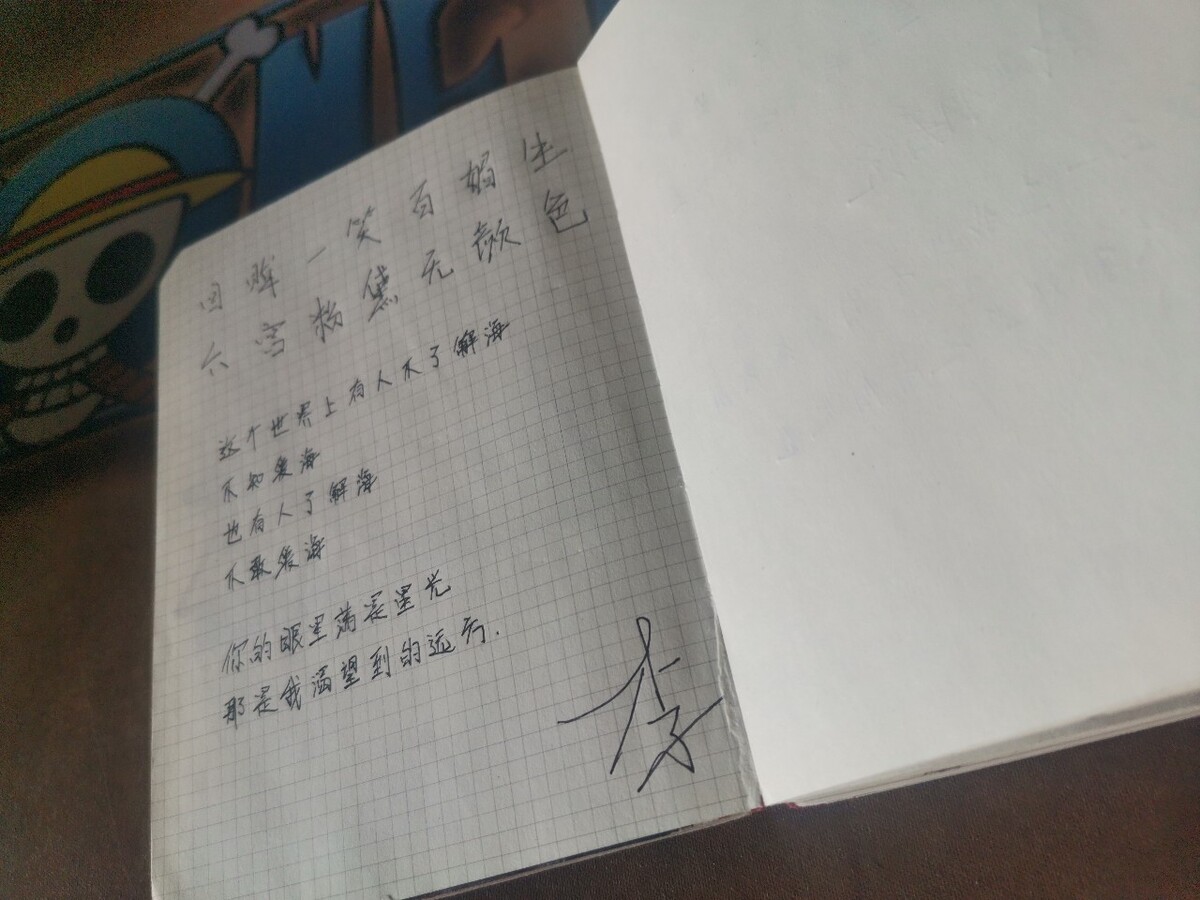 NE
回眸一笑百媚生
六宫粉黛无颜色
这个世界上有人不了解海
不知海
也有人了解海
不敢海
你的眼里满是星光
那是我渴望到的远方.
李